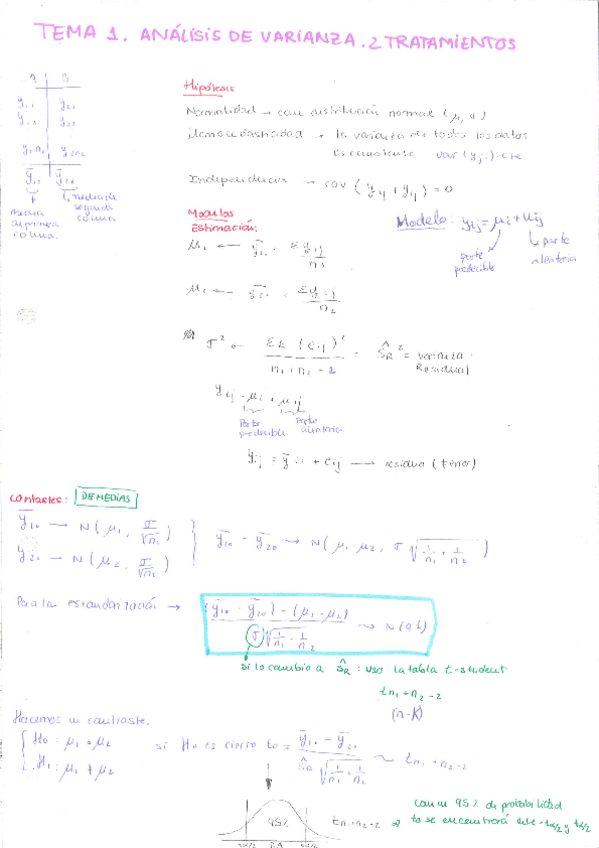 TEMA 1. ANÁLISIS DE VARIANZA. 2 TRATAMIENTOS
A B
y₁₁ y₂₁
y₁₂ y₂₂
y₁n₁ y₂n₂
ȳ₁₀ ȳ₂₀
media de primera columna.
media de segunda columna
Hipótesis
Normalidad → con distribución normal (μ, σ)
Homocedasticidad → la varianza de todos los datos
es constante var(yij)=cte
Independencia → cov (yij, yij) = 0
Modelo: yij = μi + uij
parte predecible
parte aleatoria
Estimación:
μ₁ ←
μ₂ ←
n₁ + n₂ - 2
ŜR² = varianza Residual
yij = μi + uij
Parte predecible
Parte aleatoria
+ eij → residuo (error)
Contrastes: DE MEDIAS
ȳ₁₀ → N(μ₁, σ/√n₁)
ȳ₂₀ → N(μ₂, σ/√n₂)
ȳ₁₀ - ȳ₂₀ → N(μ₁-μ₂, σ√(1/n₁ + 1/n₂))
Para la estandarización → ((ȳ₁₀ - ȳ₂₀) - (μ₁-μ₂)) / (σ√(1/n₁ + 1/n₂)) ~ N(0,1)
Si lo cambio a ŜR : uso la tabla t-student
tn₁+n₂-2
(n-K)
Hacemos un contraste.
H₀: μ₁ = μ₂
H₁: μ₁ ≠ μ₂
si H₀ es cierto t₀ = (ȳ₁₀ - ȳ₂₀) / (ŜR √(1/n₁ + 1/n₂)) ~ tn₁+n₂-2
95%
tn₁+n₂-2 ⇒
con un 95% de probabilidad
t₀ se encontrará entre -tα/2 y tα/2